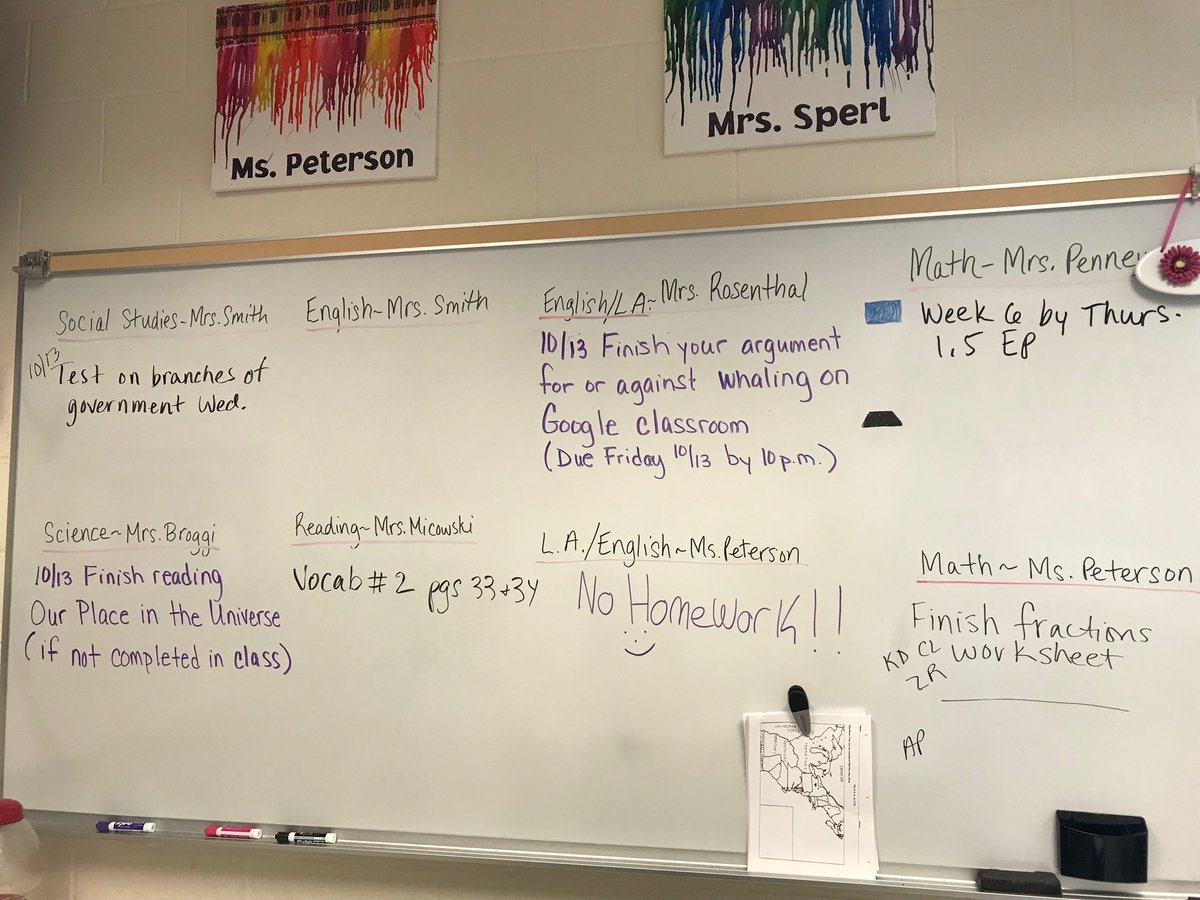 Ms. Peterson
Mrs. Sperl
Social Studies~Mrs. Smith
10/13 Test on branches of
government Wed.
English~Mrs. Smith
English/L.A.~Mrs. Rosenthal
10/13 Finish your argument
for or against whaling on
Google classroom
(Due Friday 10/13 by 10 p.m.)
Math~Mrs. Penney
Week 6 by Thurs.
1.5 EP
Science~Mrs. Broggi
10/13 Finish reading
Our Place in the Universe
(if not completed in class)
Reading~Mrs. Micowski
Vocab # 2 pgs 33+34
L.A./English~Ms. Peterson
No Homework!!
Math~Ms. Peterson
Finish fractions
worksheet
KD CL
ZR
AP